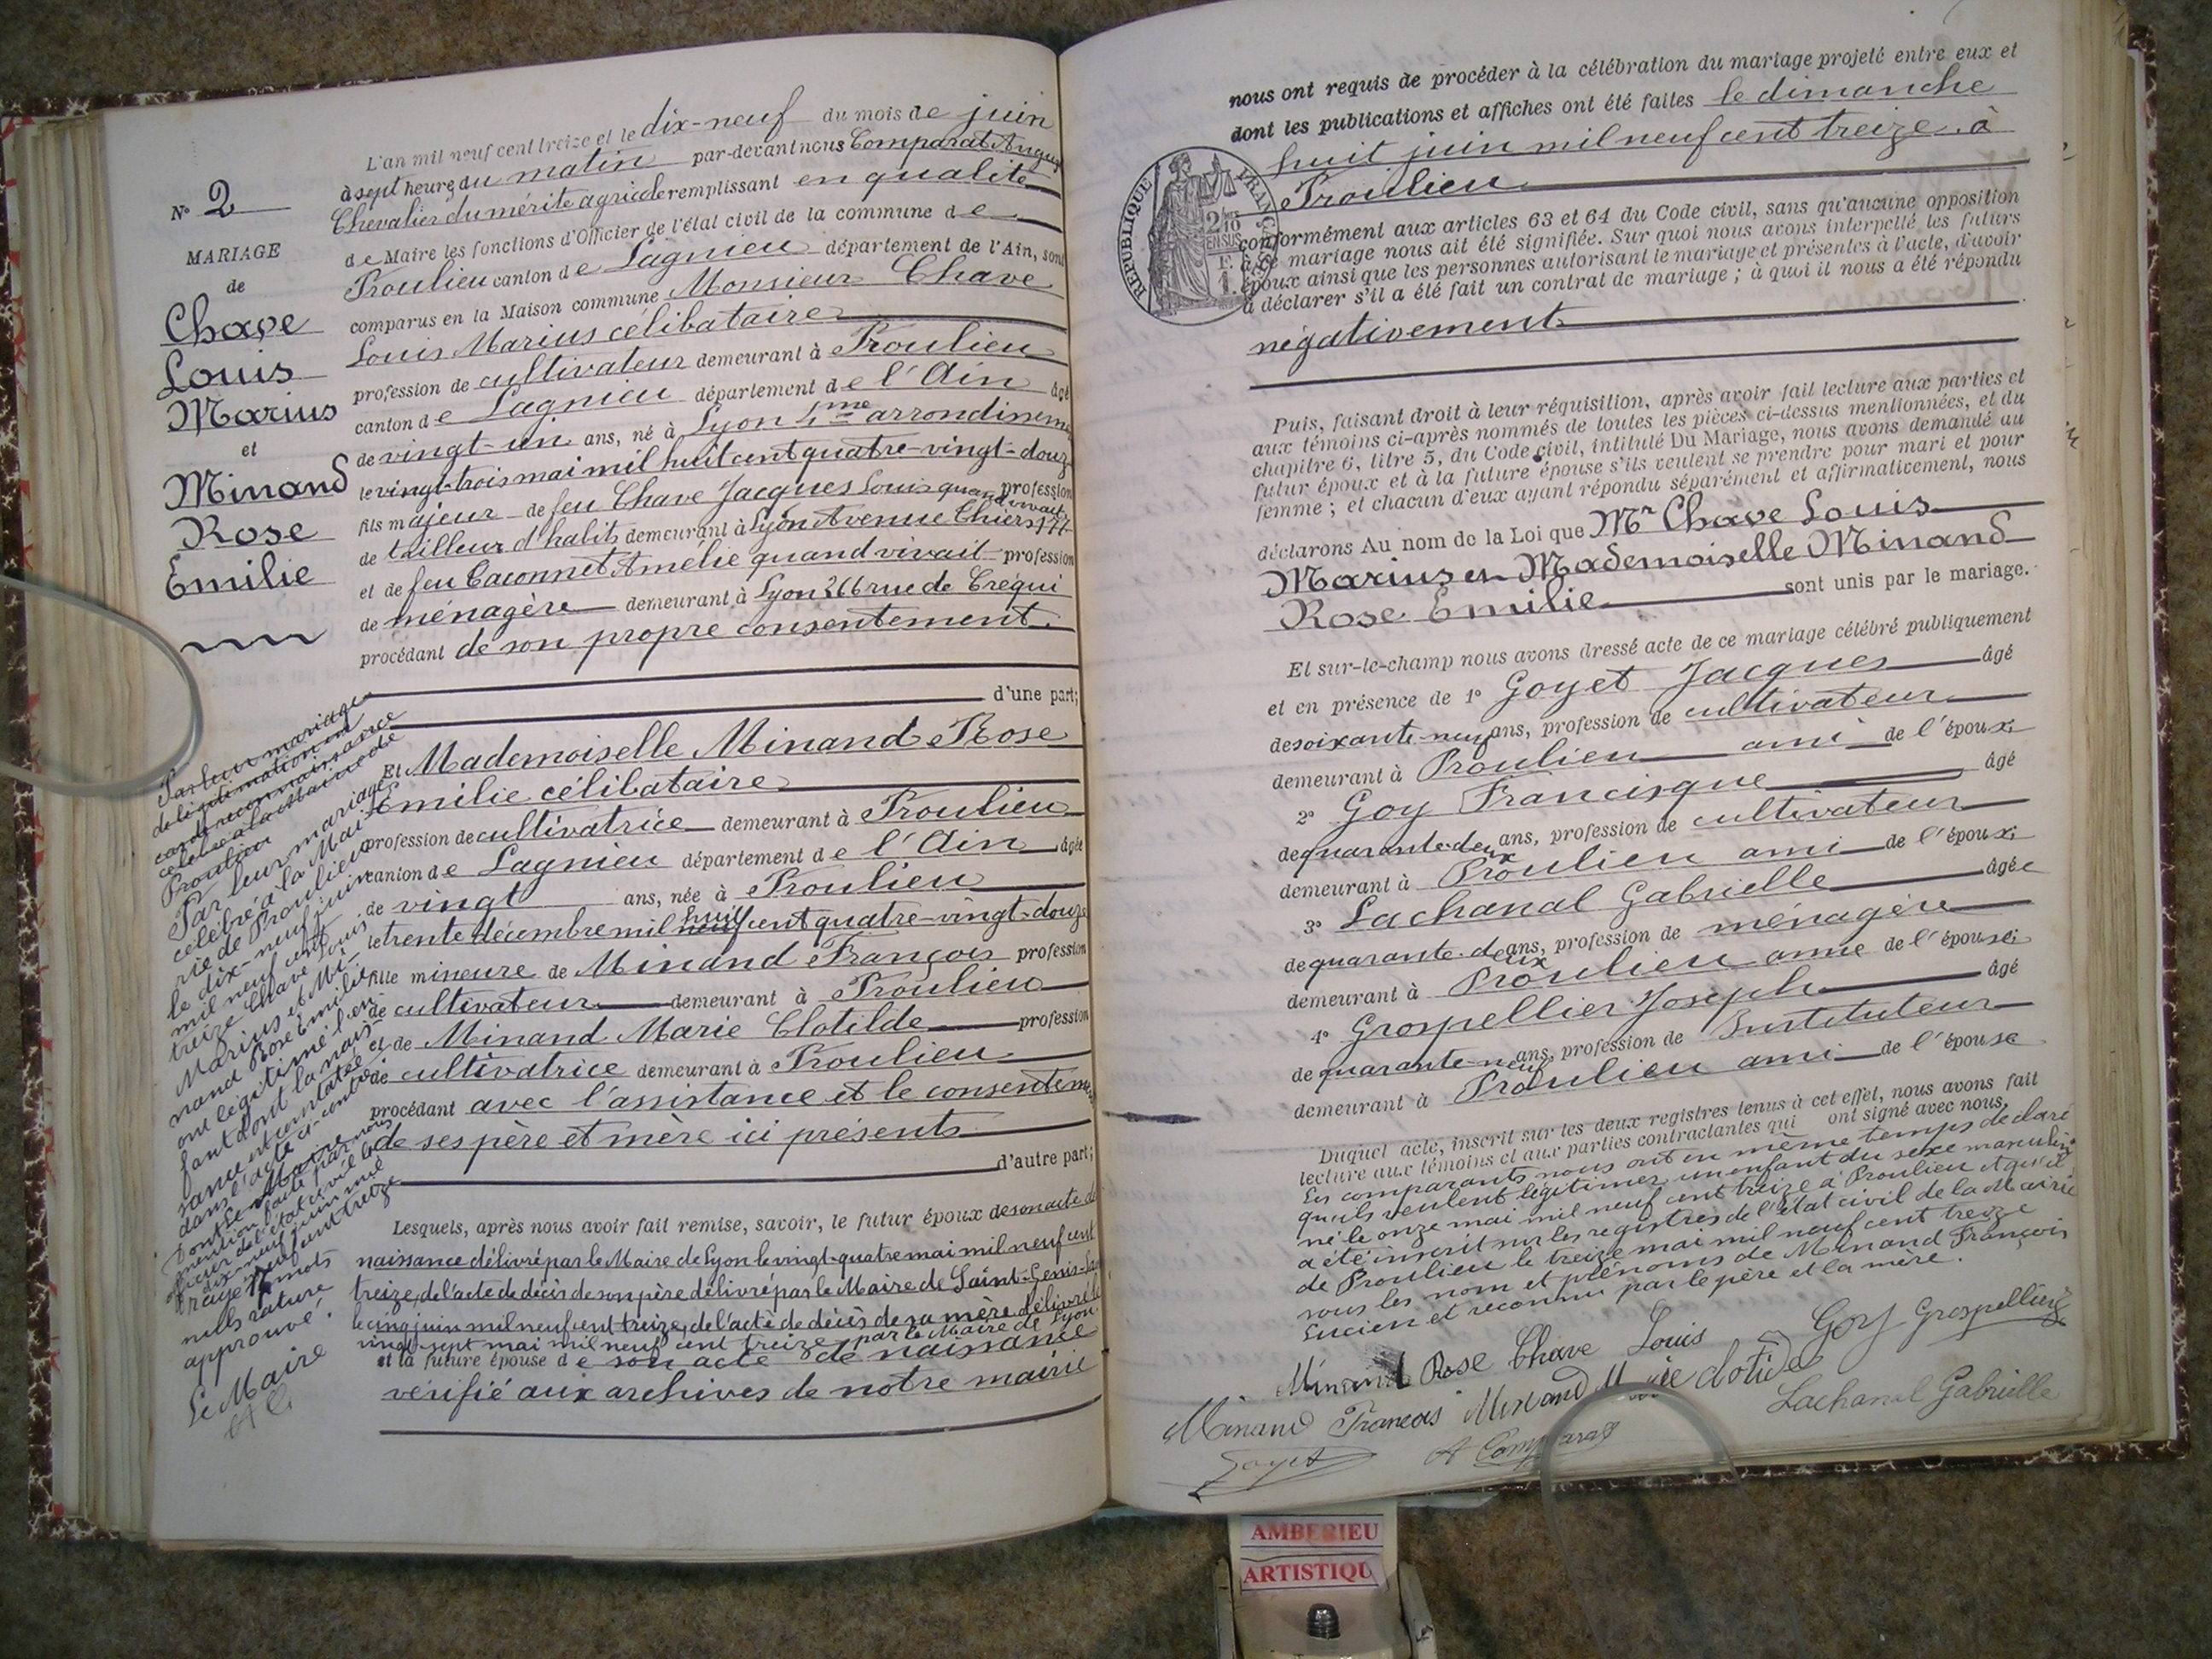 L'an mil neuf cent treize et le dix-neuf du mois de juin
à sept heures du matin par-devant nous Comparat Augus
Chevalier du mérite agricole remplissant en qualité
de Maire les fonctions d'Officier de l'état civil de la commune de
Proulieu canton de Lagnieu département de l'Ain, sont
comparus en la Maison commune Monsieur Chave
Louis Marius célibataire
profession de cultivateur demeurant à Proulieu
canton de Lagnieu département de l'Ain âgé
de vingt-un ans, né à Lyon 4me arrondissem
le vingt-trois mai mil huit cent quatre-vingt-douz
fils majeur de feu Chave Jacques Louis quand vivait profession
de tailleur d'habits demeurant à Lyon Avenue Thiers 177
et de feu Caconnet Amélie quand vivait profession
de ménagère demeurant à Lyon 266 rue de Créqui
procédant de son propre consentement.
d'une part;
Et Mademoiselle Minand Rose
Emilie célibataire
profession de cultivatrice demeurant à Proulieu
canton de Lagnieu département de l'Ain âgée
de vingt ans, née à Proulieu
le trente décembre mil neuf huit cent quatre-vingt-douze
fille mineure de Minand François profession
de cultivateur demeurant à Proulieu
et de Minand Marie Clotilde profession
de cultivatrice demeurant à Proulieu
procédant avec l'assistance et le consentem
de ses père et mère ici présents
d'autre part;
Lesquels, après nous avoir fait remise, savoir, le futur époux de son acte de
naissance délivré par le Maire de Lyon le vingt-quatre mai mil neuf cent
treize, de l'acte de décès de son père délivré par le Maire de Saint-Genis-La
le cinq juin mil neuf cent treize, de l'acte de décès de sa mère délivré le
vingt-sept mai mil neuf cent treize par le Maire de Lyon
et la future épouse de son acte de naissance
vérifié aux archives de notre mairie
N° 2
MARIAGE
de
Chave
Louis
Marius
et
Minand
Rose
Emilie
Par leur mariage
de légitimation et
carte reconnaissance
célébré à la Mairie de
Proulieu
Par leur mariage
célébré à la Mai
rie de Proulieu
le dix-neuf juin
mil neuf cent
treize Chave Louis
Marius et Mi-
nand Rose Emilie
ont légitimé l'en
fant dont la nais-
sance est constatée
dans l'acte ci-contre
Dont
mention faite par nous
officier de l'état civil le
dix-neuf juin mil
neuf cent treize
treize mots
nuls rature
approuvé.
Le Maire
A C
nous ont requis de procéder à la célébration du mariage projeté entre eux et
dont les publications et affiches ont été faites le dimanche
huit juin mil neuf cent treize à
Proulieu
REPUBLIQUE FRANÇAISE
2/10
EN SUS
conformément aux articles 63 et 64 du Code civil, sans qu'aucune opposition
à ce mariage nous ait été signifiée. Sur quoi nous avons interpellé les futurs
époux ainsi que les personnes autorisant le mariage et présentes à l'acte, d'avoir
à déclarer s'il a été fait un contrat de mariage ; à quoi il nous a été répondu
négativement
Puis, faisant droit à leur réquisition, après avoir fait lecture aux parties et
aux témoins ci-après nommés de toutes les pièces ci-dessus mentionnées, et du
chapitre 6, titre 5, du Code civil, intitulé Du Mariage, nous avons demandé au
futur époux et à la future épouse s'ils veulent se prendre pour mari et pour
femme ; et chacun d'eux ayant répondu séparément et affirmativement, nous
déclarons Au nom de la Loi que Mr Chave Louis
Marius et Mademoiselle Minand
Rose Emilie sont unis par le mariage.
Et sur-le-champ nous avons dressé acte de ce mariage célébré publiquement
et en présence de 1° Goyet Jacques âgé
de soixante-neuf ans, profession de cultivateur
demeurant à Proulieu ami de l'époux;
2° Goy Francisque âgé
de quarante-deux ans, profession de cultivateur
demeurant à Proulieu ami de l'époux;
3° Lachanal Gabrielle âgée
de quarante-deux ans, profession de ménagère
demeurant à Proulieu amie de l'épouse;
4° Grospellier Joseph âgé
de quarante-neuf ans, profession de Instituteur
demeurant à Proulieu ami de l'épouse
Duquel acte, inscrit sur les deux registres tenus à cet effet, nous avons fait
lecture aux témoins et aux parties contractantes qui ont signé avec nous.
Les comparants nous ont en même temps déclaré
qu'ils veulent légitimer un enfant du sexe masculin
né le onze mai mil neuf cent treize à Proulieu et qu'il
a été inscrit sur les registres de l'état civil de la Mairie
de Proulieu le treize mai mil neuf cent treize
sous les nom et prénoms de Minand François
Lucien et reconnu par le père et la mère.
Minand Rose Chave Louis Goy Grospellier
Minand François Minand Marie Clotilde Lachanal Gabrielle
Goyet A Comparat
AMBERIEU
ARTISTIQU